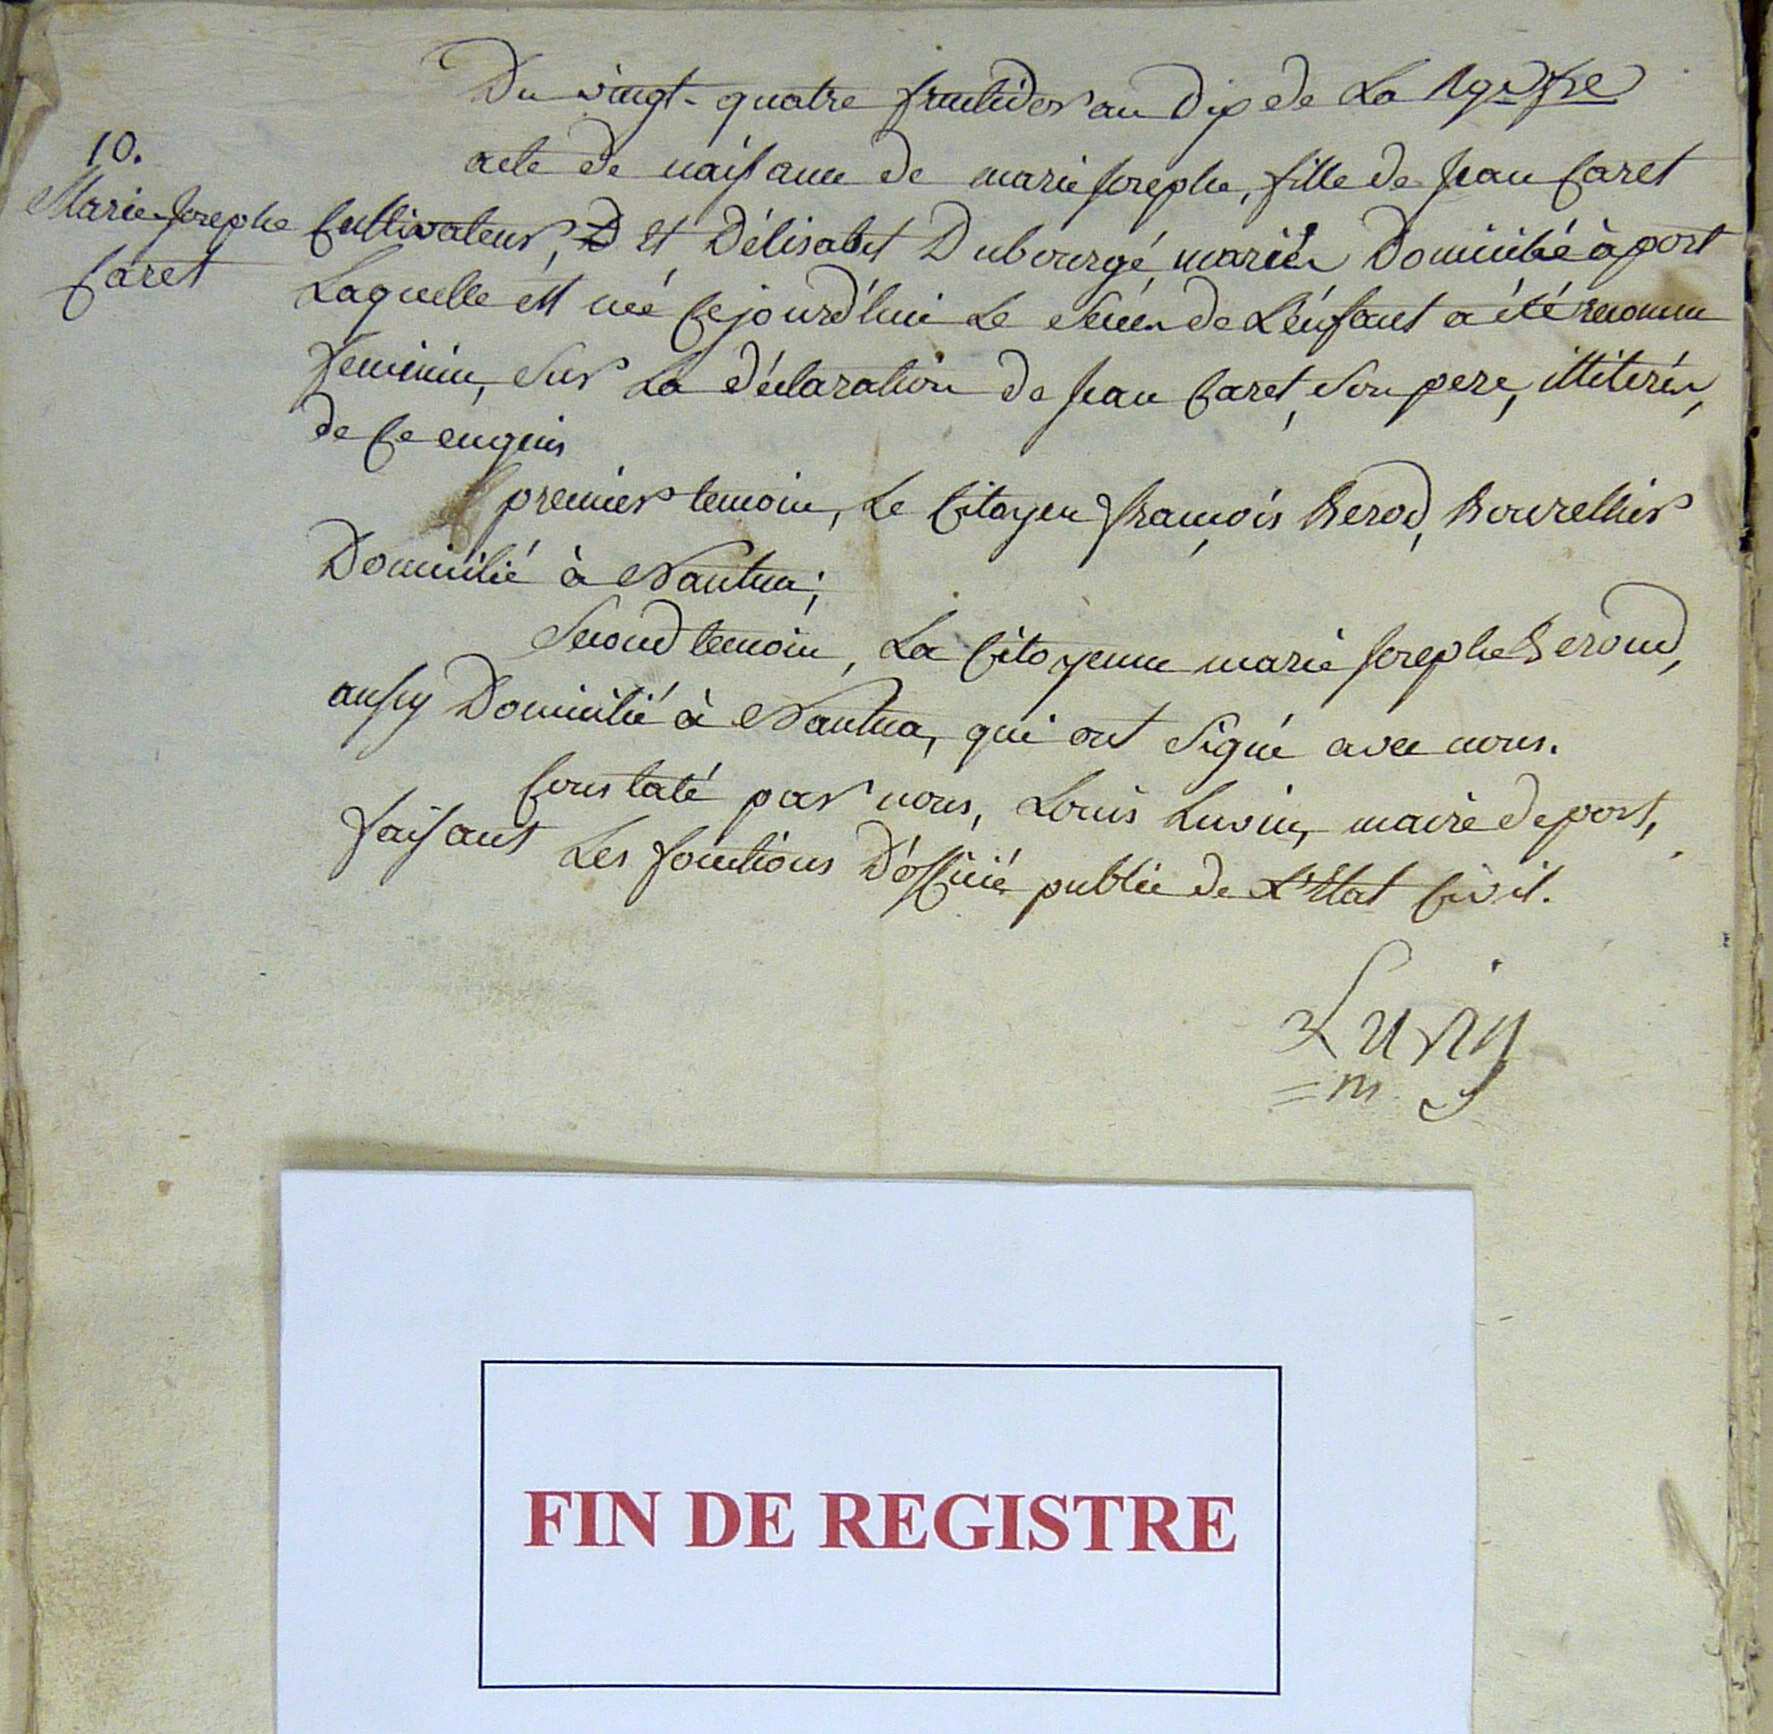 Du vingt-quatre fructidor an Dix de La Rque. fse
10.
acte de naissance de marie josephe, fille de jean Caret
Marie-Josephe
Caret
Cultivateur, Et Délisabet Dubourgé mariés Domicilié à port
Laquelle ést née Cejourd'hui Le Sexe de L'énfant a été reconnu
feminin, Sur La déclaration de jean Caret, Son pere, illiterés,
de Ce enquis
premier temoin, Le Citoyen françois Berod, Bourellier
Domicilié à Nantua;
Second temoin, La Citoyenne marie josephe Beroud,
aussy Domicilié à Nantua, qui ont Signé avec nous.
Constaté par nous, Louis Luvin, maire de port,
faisant Les fonctions D'officié public de L'Etat Civil.
Luvin
m
FIN DE REGISTRE